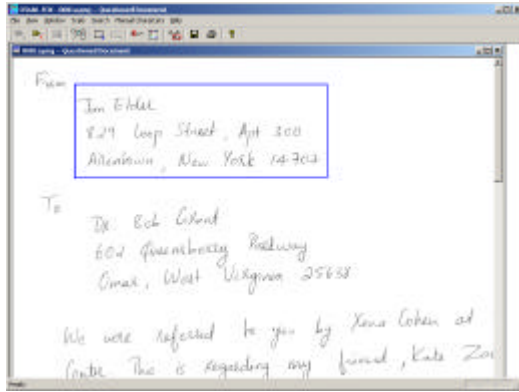 From
Jim Elder
829 Loop Street, Apt 300
Allentown, New York 14707
To
Dr Bob Grant
602 Queensberry Parkway
Omar, West Virginia 25638
We were referred to you by Xena Cohen at
Center This is regarding my friend, Kate Zac